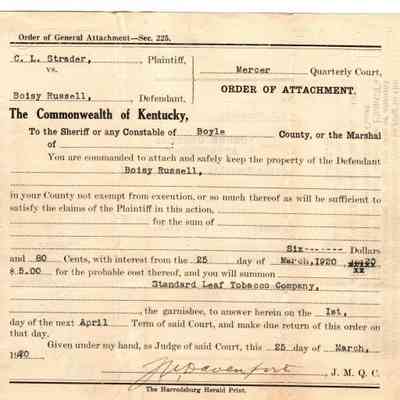 Order of General Attachment—Sec. 225.
C. L. Strader, Plaintiff,
vs.
Mercer Quarterly Court,
ORDER OF ATTACHMENT.
Boisy Russell, Defendant.
The Commonwealth of Kentucky,
To the Sheriff or any Constable of Boyle County, or the Marshal
of :
You are commanded to attach and safely keep the property of the Defendant
Boisy Russell,
in your County not exempt from execution, or so much thereof as will be sufficient to
satisfy the claims of the Plaintiff in this action,
for the sum of
Six------- Dollars
and 80 Cents, with interest from the 25 day of March, 1920
$ 5.00 for the probable cost thereof, and you will summon
Standard Leaf Tobacco Company,
, the garnishee, to answer herein on the 1st,
day of the next April Term of said Court, and make due return of this order on
that day.
Given under my hand, as Judge of said Court, this 25 day of March,
1920
Davenport, J. M. Q. C.
The Harrodsburg Herald Print.